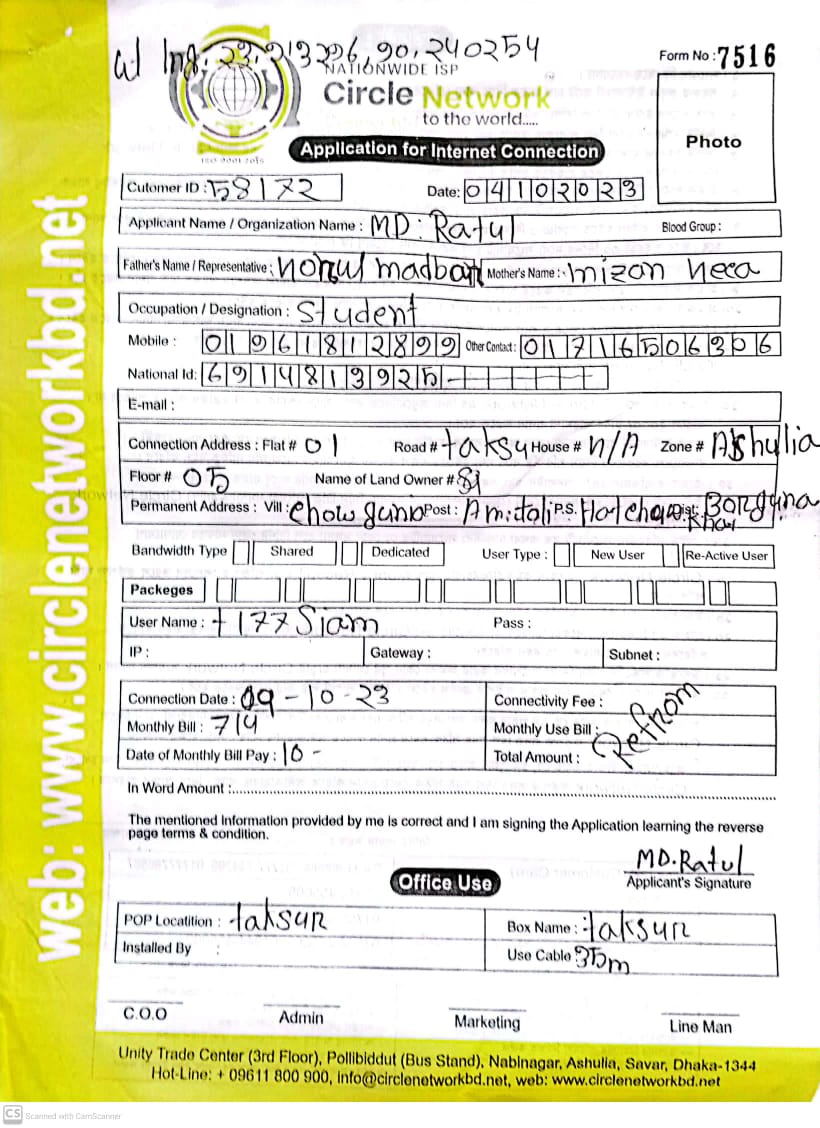 NATIONWIDE ISP
Form No : 7516
Circle Network
to the world.....
Photo
ISO 9001:2015
Application for Internet Connection
Cutomer ID : 58172 Date: 04102023
Applicant Name / Organization Name : MD: Ratul Blood Group :
Father's Name / Representative : Mother's Name :- mizan neca
Occupation / Designation : Student
Mobile : 01961812899 Other Contact : 01716506306
National Id: 6914813925-
E-mail :
Connection Address : Flat # 01 Road # taksu House # N/A Zone # Ashulia
Floor # 05 Name of Land Owner #
Permanent Address : Vill : Post : Amitoli P.S. Dist: Borguna
Bandwidth Type Shared Dedicated User Type : New User Re-Active User
Packeges
User Name : t177Siam Pass :
IP : Gateway : Subnet :
Connection Date : 09-10-23 Connectivity Fee :
Monthly Bill : 714 Monthly Use Bill :
Refrom
Date of Monthly Bill Pay : 10 - Total Amount :
In Word Amount :
The mentioned information provided by me is correct and I am signing the Application learning the reverse
page terms & condition.
MD.Ratul
Office Use Applicant's Signature
POP Locatition : taksur Box Name : taksur
Installed By : Use Cable 35m
C.O.O Admin Marketing Line Man
Unity Trade Center (3rd Floor), Pollibiddut (Bus Stand), Nabinagar, Ashulia, Savar, Dhaka-1344
Hot-Line: + 09611 800 900, info@circlenetworkbd.net, web: www.circlenetworkbd.net
web: www.circlenetworkbd.net
CS Scanned with CamScanner